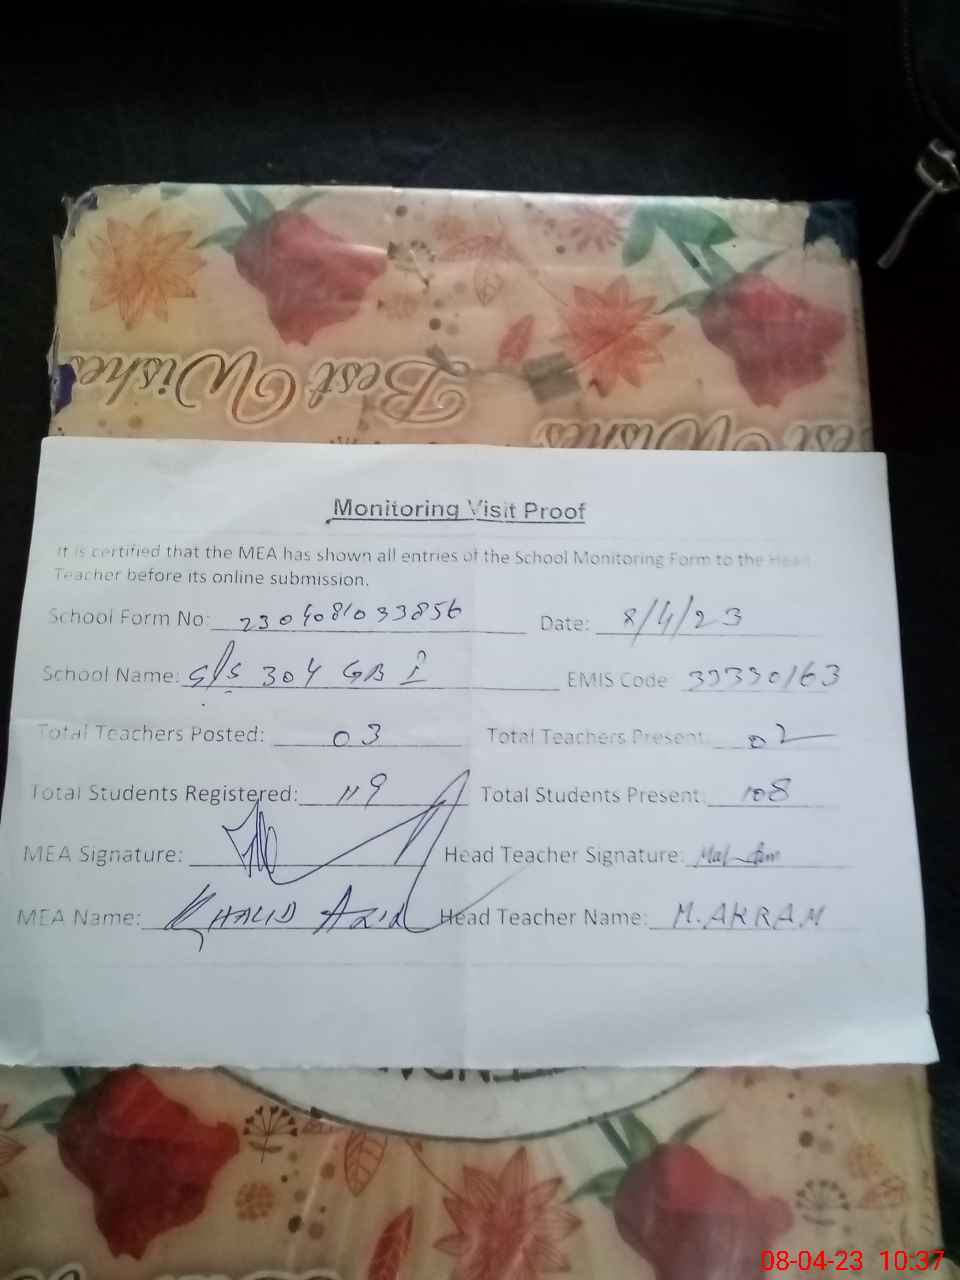 Best Wishes
Best Wishes
Monitoring Visit Proof
It is certified that the MEA has shown all entries of the School Monitoring Form to the Head
Teacher before its online submission.
School Form No: 2304081033856 Date: 8/4/23
School Name: 304 GB EMIS Code 33330163
Total Teachers Posted: 03 Total Teachers Present: 02
Total Students Registered: 119 Total Students Present: 108
MEA Signature: Head Teacher Signature:
MEA Name: KHALID Head Teacher Name: M. AKRAM
08-04-23 10:37